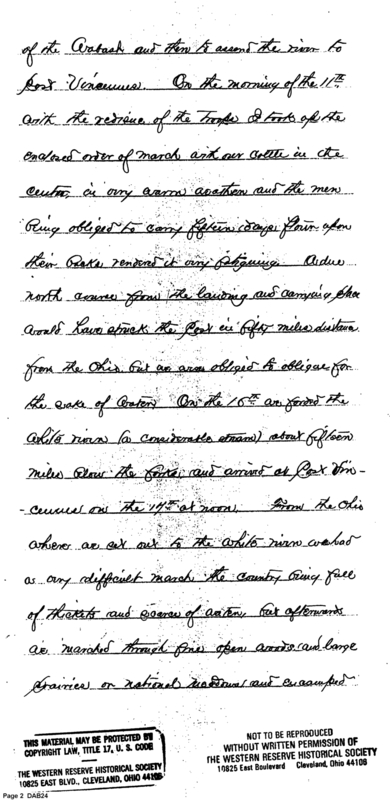 of the Wabash and then to ascend the river to
Post Vincennes. On the morning of the 11th
with the residue of the Troops I took up the
enclosed order of march with our cattle in the
centre, in very warm weather and the men
being obliged to carry fifteen days flour upon
their backs rendered it very fatiguing. A due
north course from the landing and carrying place
would have struck the Post in fifty miles distance
from the Ohio, but we were obliged to oblique for
the sake of water. On the 16th we forded the
White river (a considerable stream) about fifteen
miles below the forks, and arrived at Post Vin-
-cennes on the 17th at noon. From the Ohio
where we set out to the White river we had
a very difficult march the country being full
of thickets and scarce of water, but afterwards
we marched through fine open woods and large
prairies or natural meadows and encamped
THIS MATERIAL MAY BE PROTECTED BY
COPYRIGHT LAW, TITLE 17, U. S. CODE
THE WESTERN RESERVE HISTORICAL SOCIETY
10825 EAST BLVD., CLEVELAND, OHIO 44106
NOT TO BE REPRODUCED
WITHOUT WRITTEN PERMISSION OF
THE WESTERN RESERVE HISTORICAL SOCIETY
10825 East Boulevard Cleveland, Ohio 44106
Page 2 DAB24